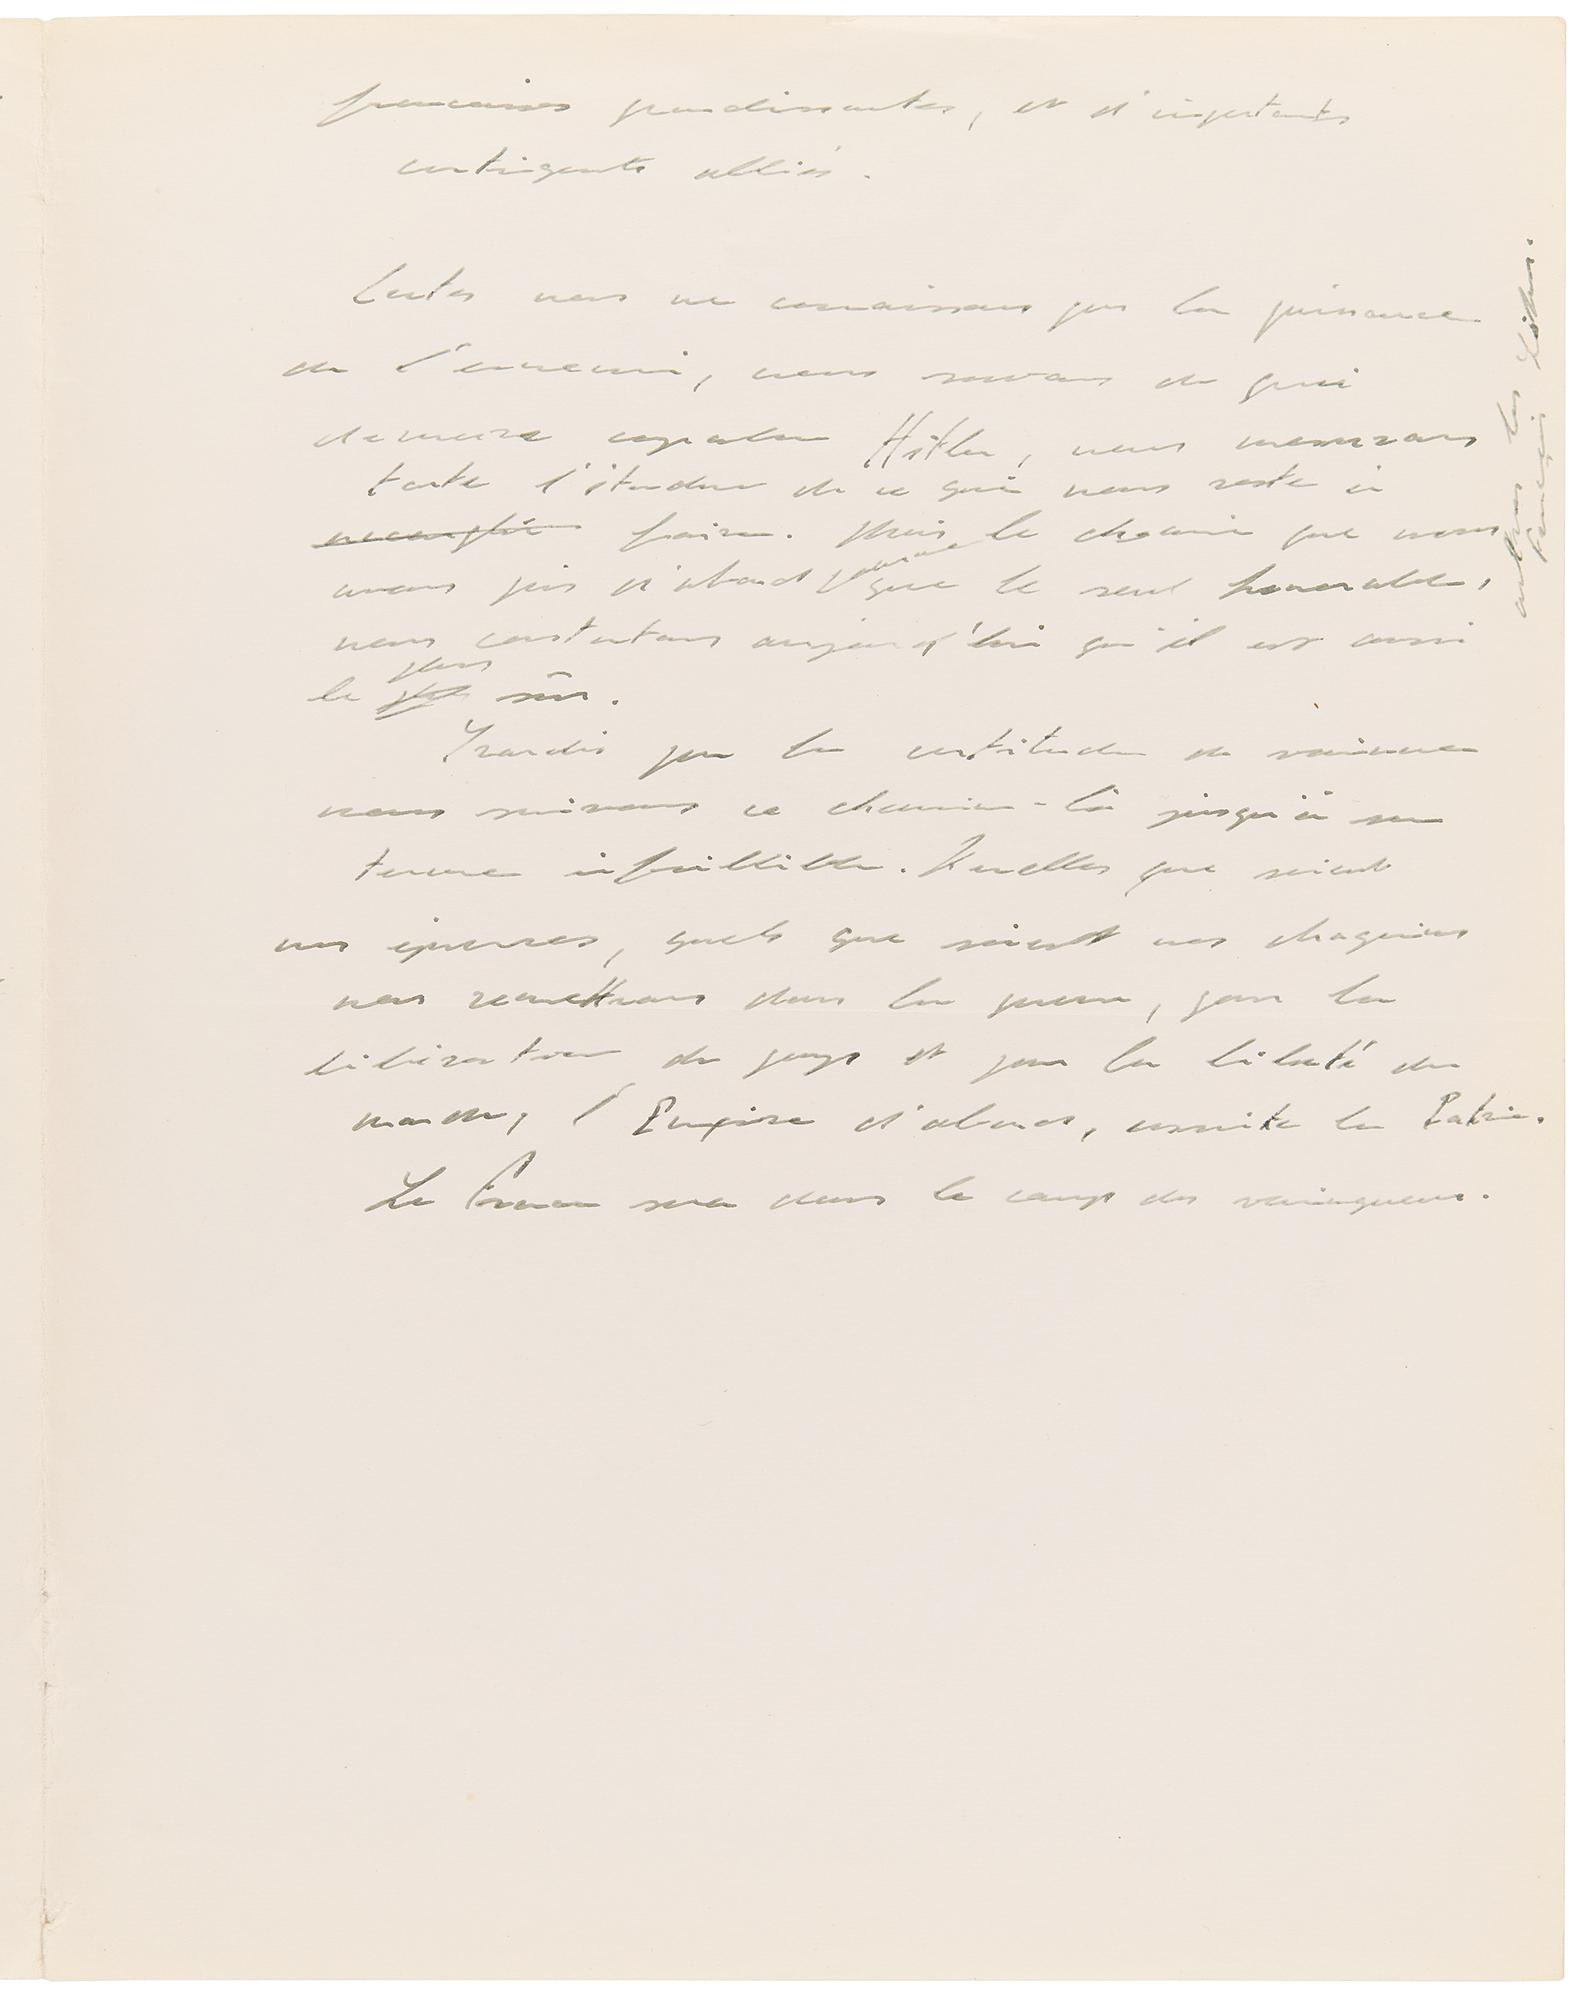 françaises grandissantes, et d'importants
contingents alliés.
Certes nous ne connaissons pas la puissance
de l'ennemi, nous savons de quoi
demeure capable Hitler, nous mesurons
toute l'étendue de ce qui nous reste à
accomplir faire. Mais le chemin que nous
avons pris d'abord parce
que le seul honorable,
nous constatons aujourd'hui qu'il est aussi
plus
le plus sûr.
Grandis par la certitude de vaincre
nous suivrons ce chemin-là jusqu'à son
terme infaillible. Quelles que soient
nos épreuves, quels que soient nos chagrins
nous remettrons dans la guerre, pour la
libération du pays et pour la liberté du
monde, l'Empire d'abord, ensuite la Patrie.
La France sera dans le camp des vainqueurs.
autres les
Français libres.